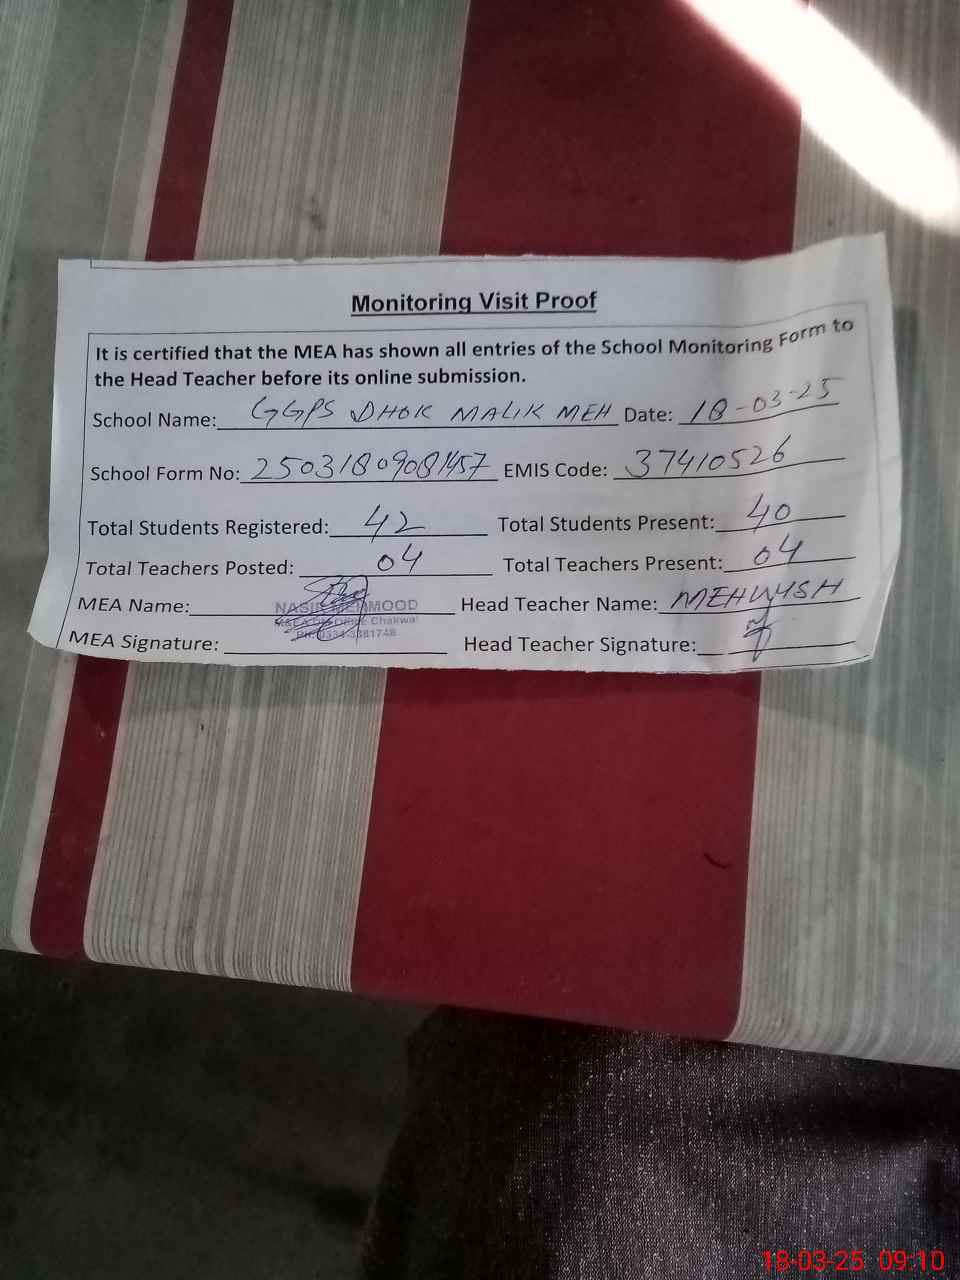 Monitoring Visit Proof
It is certified that the MEA has shown all entries of the School Monitoring Form to
the Head Teacher before its online submission.
School Name: GGPS DHOK MALIK MEH Date: 18-03-25
School Form No: 25031809081457 EMIS Code: 37410526
Total Students Registered: 42 Total Students Present: 40
Total Teachers Posted: 04 Total Teachers Present: 04
MEA Name: NASIR MEHMOOD Head Teacher Name: MEHWYSH
Chakwal
MEA Signature: Head Teacher Signature:
18-03-25 09:10